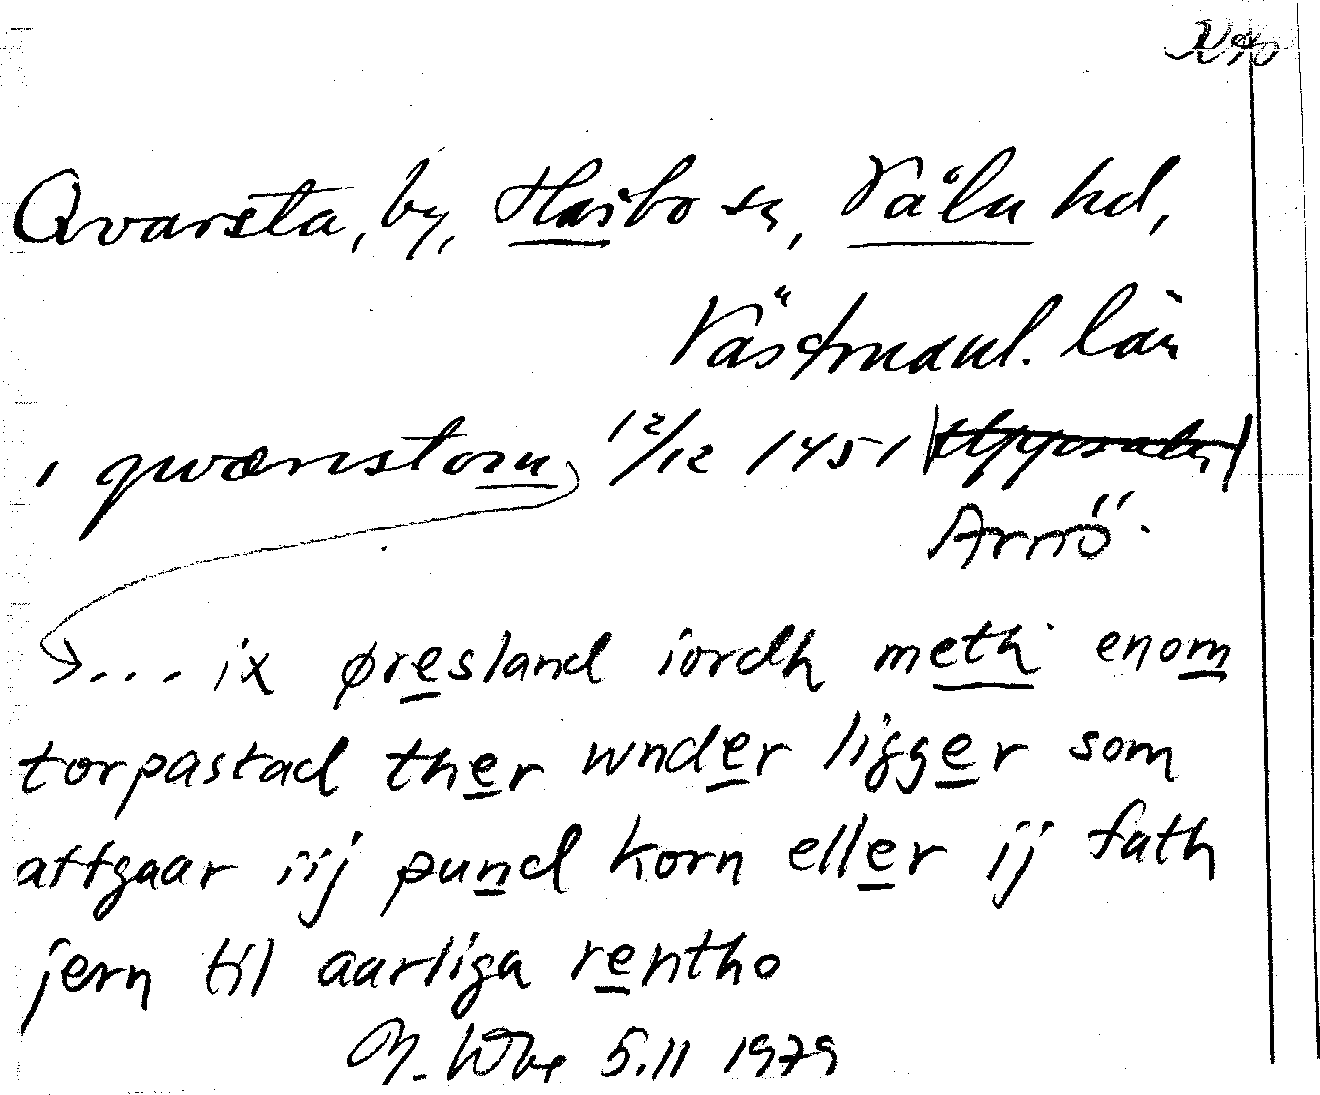 Qvarsta, by, Harbo sn, Våla hd,
Västmanl. län
i qwærnstom 12/12 1451 (Uppsala)
Arnö.
... ix øresland iordh meth enom
torpastad ther wnder ligger som
affgaar iij pund korn eller ij fath
jern til aarliga rentho
5.11 1979